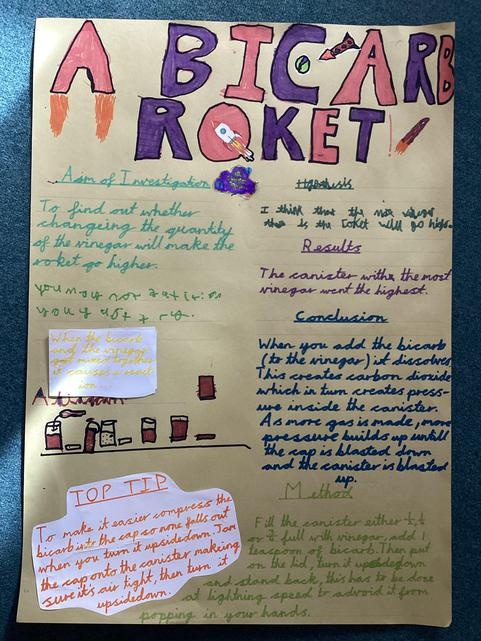 A BICARB
ROKET!
Aim of Investigation
To find out whether
changeing the quantity
of the vinegar will make the
roket go higher.
you may not
When the bicarb
and the vinegar
get mixed together
it causes a react
ion...
TOP TIP
To make it easier compress the
bicarb into the cap so none falls out
when you turn it upsidedown. Jam
the cap onto the canister makeing
sure it's air tight, then turn it
upsidedown.
I think that the vinegar
the roket will go high
Results
The canister with the most
vinegar went the highest.
Conclusion
When you add the bicarb
(to the vinegar) it dissolves.
This creates carbon dioxide
which in turn creates press-
ure inside the canister.
As more gas is made, more
pressure builds up untill
the cap is blasted down
and the canister is blasted
up.
Method
Fill the canister either ¼, ½
or ¾ full with vinegar, add 1
teaspoon of bicarb. Then put
on the lid, turn it upsidedown
and stand back, this has to be done
at lightning speed to advoid it from
popping in your hands.